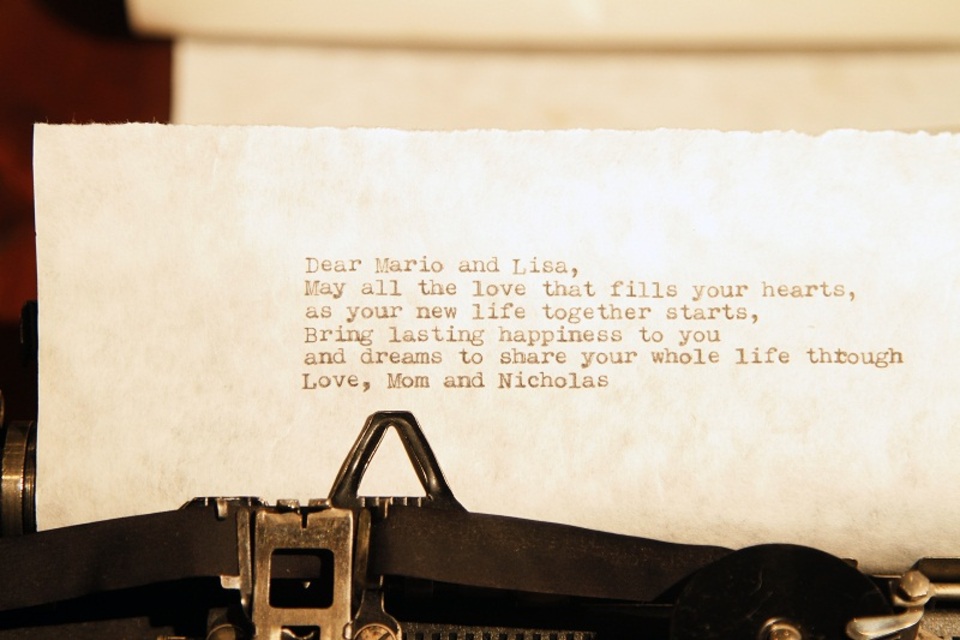 Dear Mario and Lisa,
May all the love that fills your hearts,
as your new life together starts,
Bring lasting happiness to you
and dreams to share your whole life through
Love, Mom and Nicholas